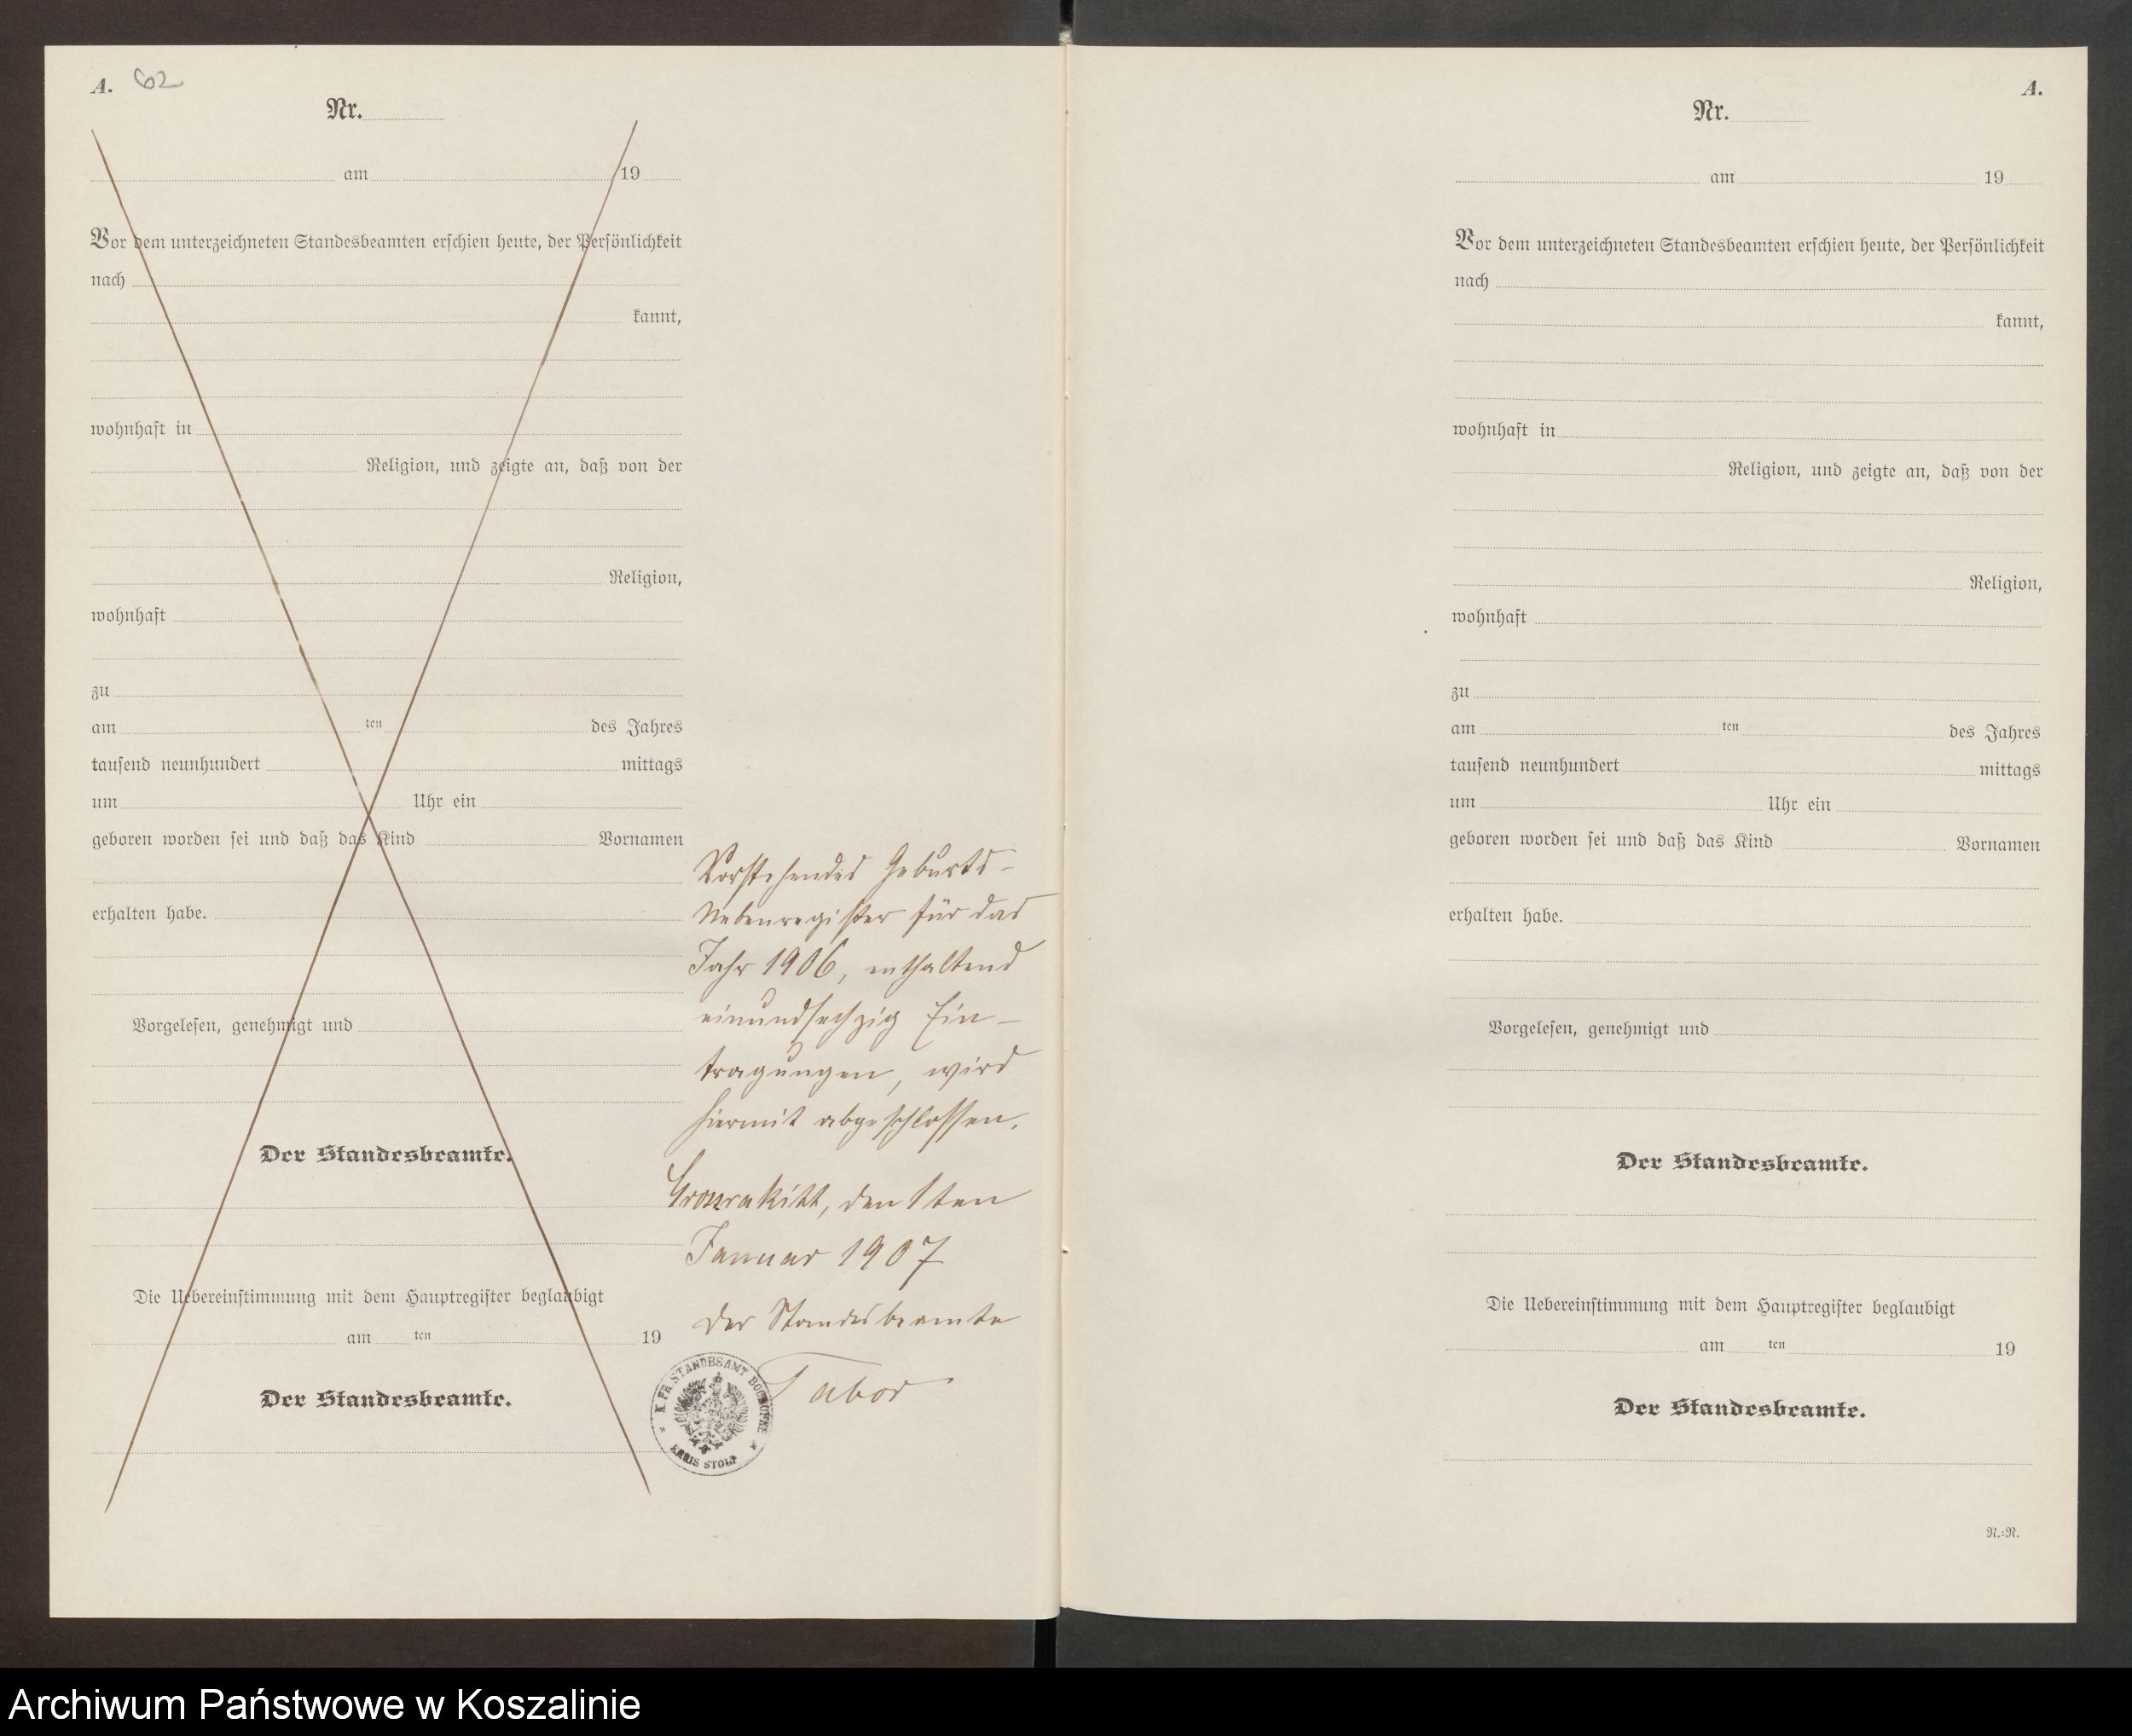 A. 62
Nr.
am 19
Vor dem unterzeichneten Standesbeamten erschien heute, der Persönlichkeit
nach
kannt,
wohnhaft in
Religion, und zeigte an, daß von der
Religion,
wohnhaft
zu
am ten des Jahres
tausend neunhundert mittags
um Uhr ein
geboren worden sei und daß das Kind Vornamen
erhalten habe.
Vorgelesen, genehmigt und
Der Standesbeamte.
Die Uebereinstimmung mit dem Hauptregister beglaubigt
am ten 19
Der Standesbeamte.
Vorstehendes Geburts-
Nebenregister für das
Jahr 1906, enthaltend
einundsechzig Ein-
tragungen, wird
hiermit abgeschlossen.
den 1ten
Januar 1907
Der Standesbeamte
Tabor
K. PR. STANDESAMT
KREIS STOLP
A.
Nr.
am 19
Vor dem unterzeichneten Standesbeamten erschien heute, der Persönlichkeit
nach
kannt,
wohnhaft in
Religion, und zeigte an, daß von der
Religion,
wohnhaft
zu
am ten des Jahres
tausend neunhundert mittags
um Uhr ein
geboren worden sei und daß das Kind Vornamen
erhalten habe.
Vorgelesen, genehmigt und
Der Standesbeamte.
Die Uebereinstimmung mit dem Hauptregister beglaubigt
am ten 19
Der Standesbeamte.
N.=R.
Archiwum Państwowe w Koszalinie